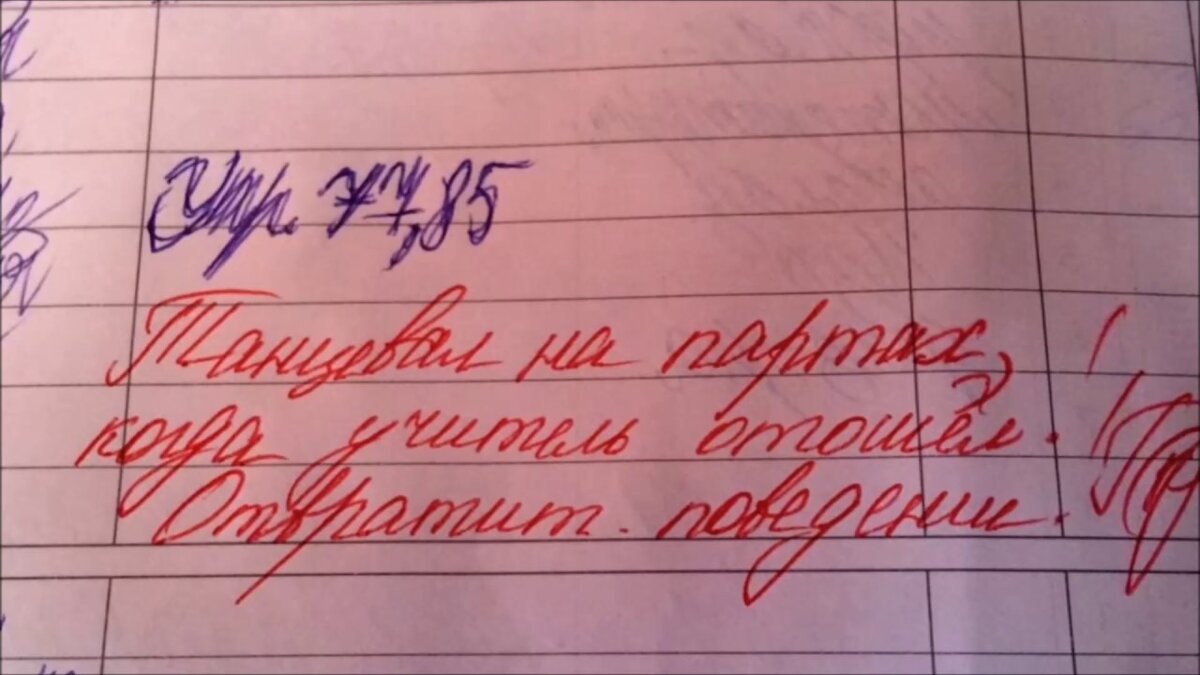 Упр. 77,85
Танцевал на партах,
когда учитель отошёл.
Отвратит. поведении.